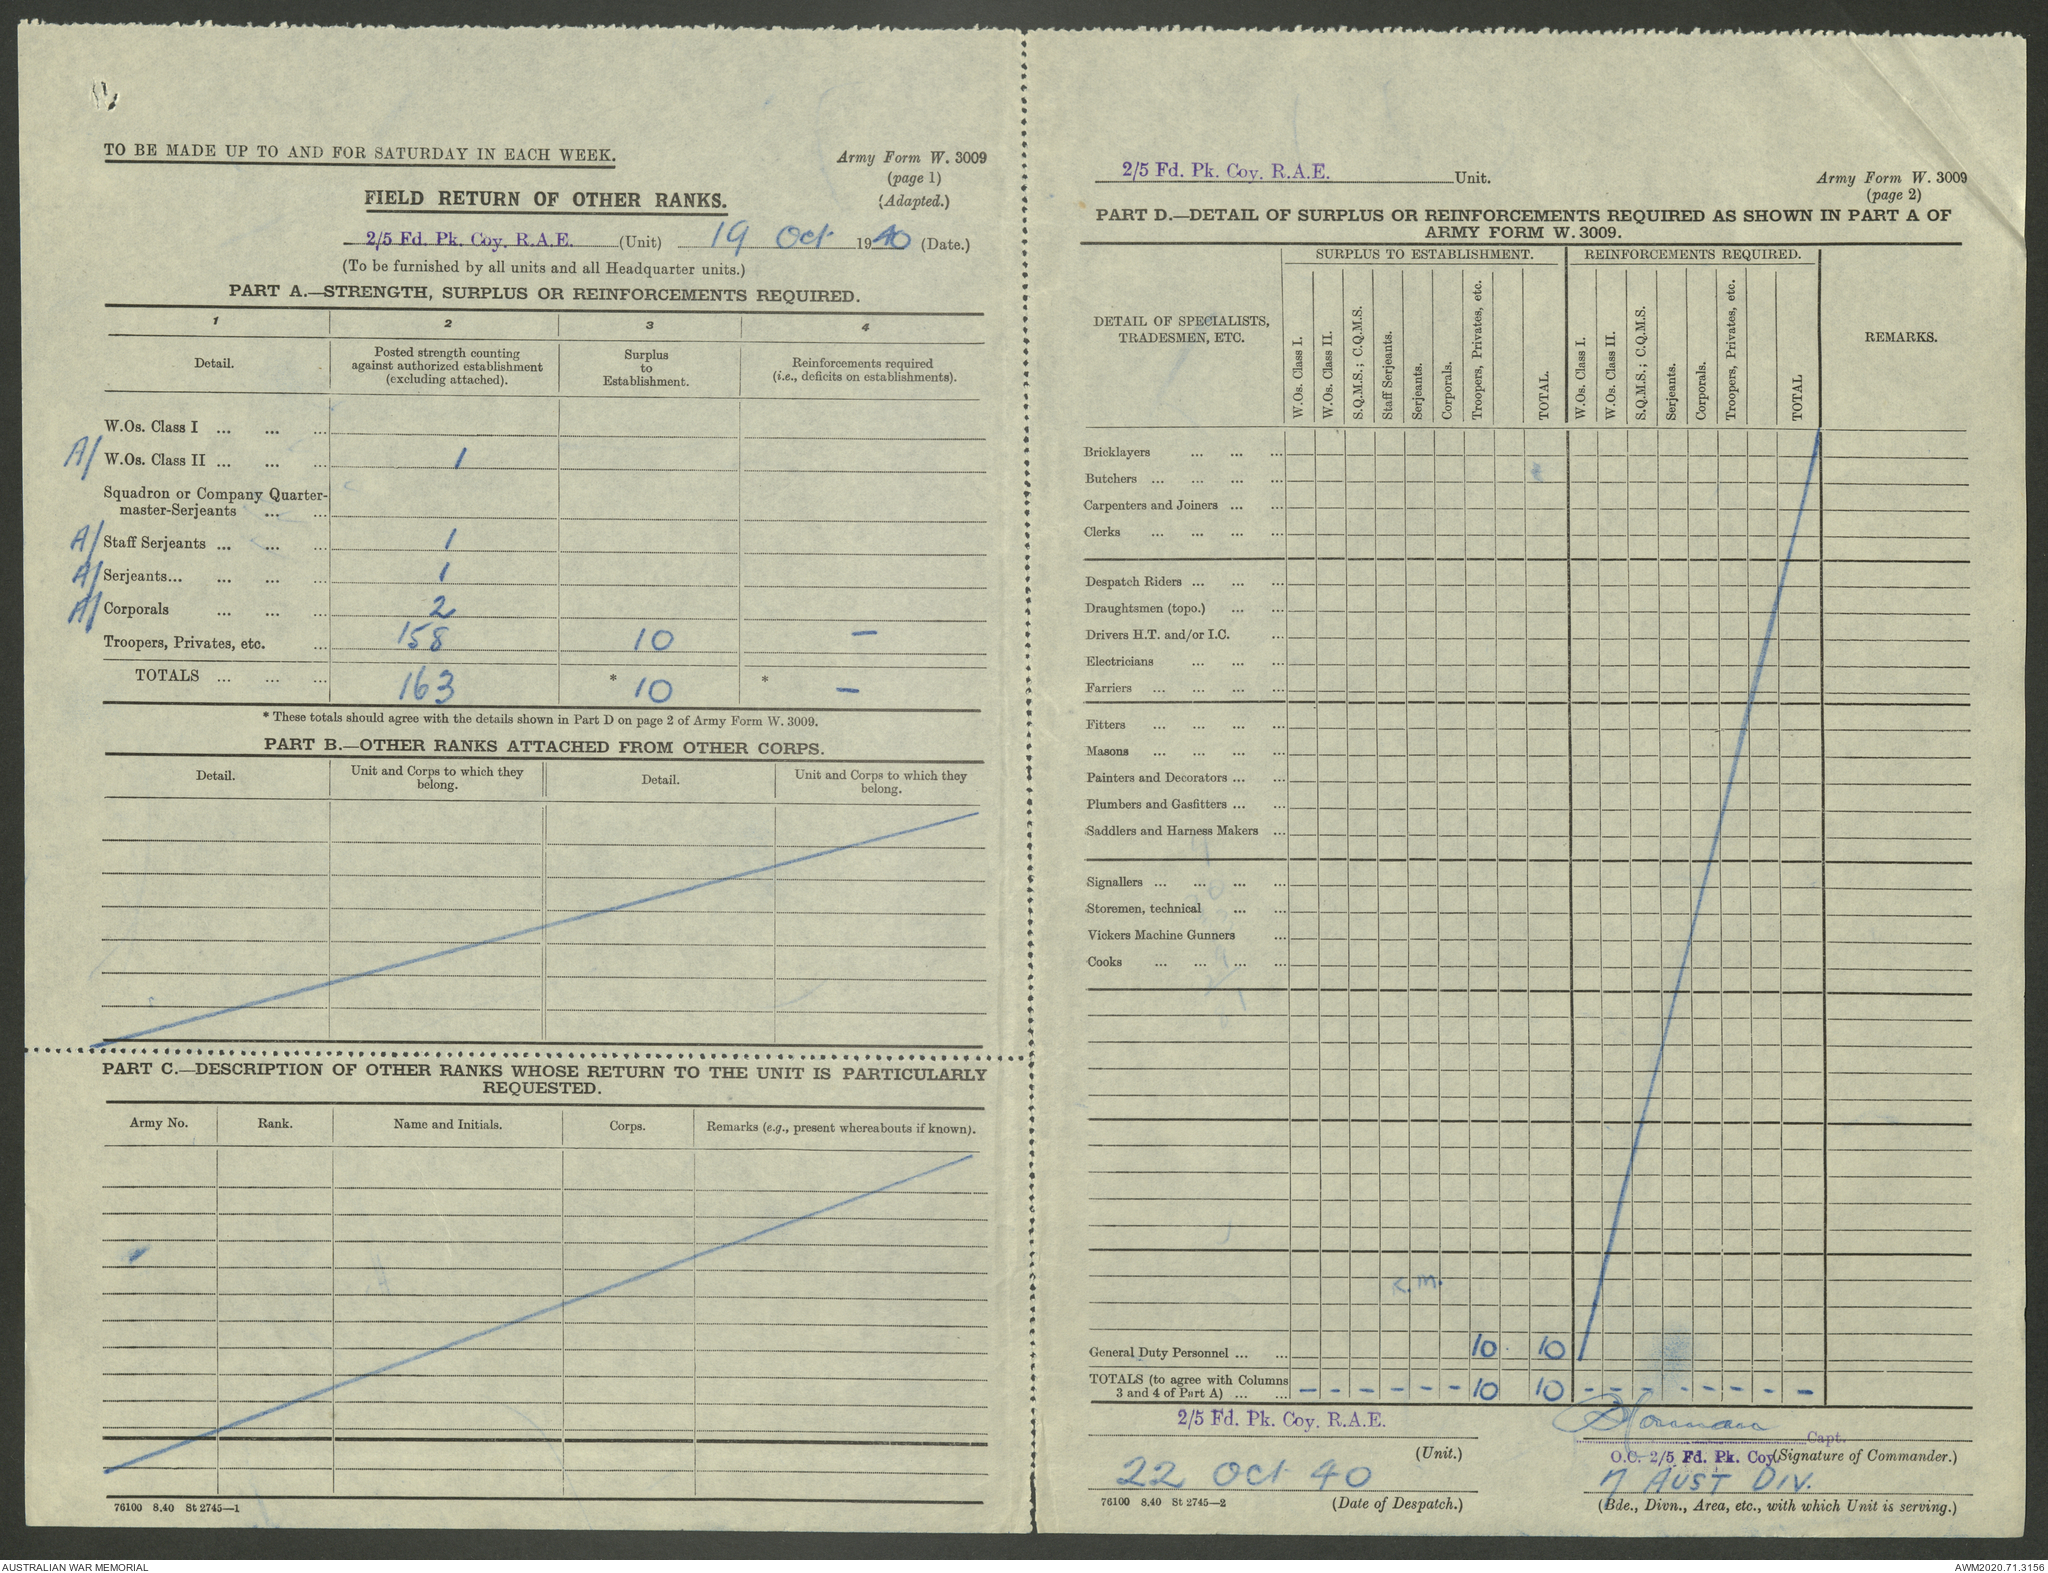 TO BE MADE UP TO AND FOR SATURDAY IN EACH WEEK.
Army Form W. 3009
(page 1)
(Adapted.)
FIELD RETURN OF OTHER RANKS.
2/5 Fd. Pk. Coy. R.A.E. (Unit) 19 Oct 1940 (Date.)
(To be furnished by all units and all Headquarter units.)
PART A.—STRENGTH, SURPLUS OR REINFORCEMENTS REQUIRED.
1 2 3 4
Detail.
Posted strength counting against authorized establishment (excluding attached).
Surplus to Establishment.
Reinforcements required (i.e., deficits on establishments).
W.Os. Class I ... ... ...
A/ W.Os. Class II ... ... ... 1
Squadron or Company Quarter-
master-Serjeants ... ...
A/ Staff Serjeants ... ... ... 1
A/ Serjeants... ... ... ... 1
A/ Corporals ... ... ... 2
Troopers, Privates, etc. ... 158 10 —
TOTALS ... ... ... 163 * 10 * —
* These totals should agree with the details shown in Part D on page 2 of Army Form W. 3009.
PART B.—OTHER RANKS ATTACHED FROM OTHER CORPS.
Detail.
Unit and Corps to which they belong.
Detail.
Unit and Corps to which they belong.
PART C.—DESCRIPTION OF OTHER RANKS WHOSE RETURN TO THE UNIT IS PARTICULARLY
REQUESTED.
Army No. Rank. Name and Initials. Corps. Remarks (e.g., present whereabouts if known).
76100 8.40 St 2745—1
2/5 Fd. Pk. Coy. R.A.E. Unit.
Army Form W. 3009
(page 2)
PART D.—DETAIL OF SURPLUS OR REINFORCEMENTS REQUIRED AS SHOWN IN PART A OF
ARMY FORM W. 3009.
SURPLUS TO ESTABLISHMENT. REINFORCEMENTS REQUIRED.
DETAIL OF SPECIALISTS,
TRADESMEN, ETC.
W.Os. Class I.
W.Os. Class II.
S.Q.M.S.; C.Q.M.S.
Staff Serjeants.
Serjeants.
Corporals.
Troopers, Privates, etc.
TOTAL.
W.Os. Class I.
W.Os. Class II.
S.Q.M.S.; C.Q.M.S.
Serjeants.
Corporals.
Troopers, Privates, etc.
TOTAL
REMARKS.
Bricklayers ... ... ...
Butchers ... ... ... ...
Carpenters and Joiners ... ...
Clerks ... ... ... ...
Despatch Riders ... ... ...
Draughtsmen (topo.) ... ...
Drivers H.T. and/or I.C. ...
Electricians ... ... ...
Farriers ... ... ... ...
Fitters ... ... ... ...
Masons ... ... ... ...
Painters and Decorators ... ...
Plumbers and Gasfitters ... ...
Saddlers and Harness Makers ...
Signallers ... ... ... ...
Storemen, technical ... ...
Vickers Machine Gunners ...
Cooks ... ... ... ...
General Duty Personnel ... ... 10 10
TOTALS (to agree with Columns
3 and 4 of Part A) ... ... — — — — — — 10 10 — — — — — — — —
2/5 Fd. Pk. Coy. R.A.E.
(Unit.)
22 Oct 40
(Date of Despatch.)
76100 8.40 St 2745—2
Capt.
O.C. 2/5 Fd. Pk. Coy. (Signature of Commander.)
7 AUST DIV.
(Bde., Divn., Area, etc., with which Unit is serving.)
AUSTRALIAN WAR MEMORIAL
AWM2020.71.3156